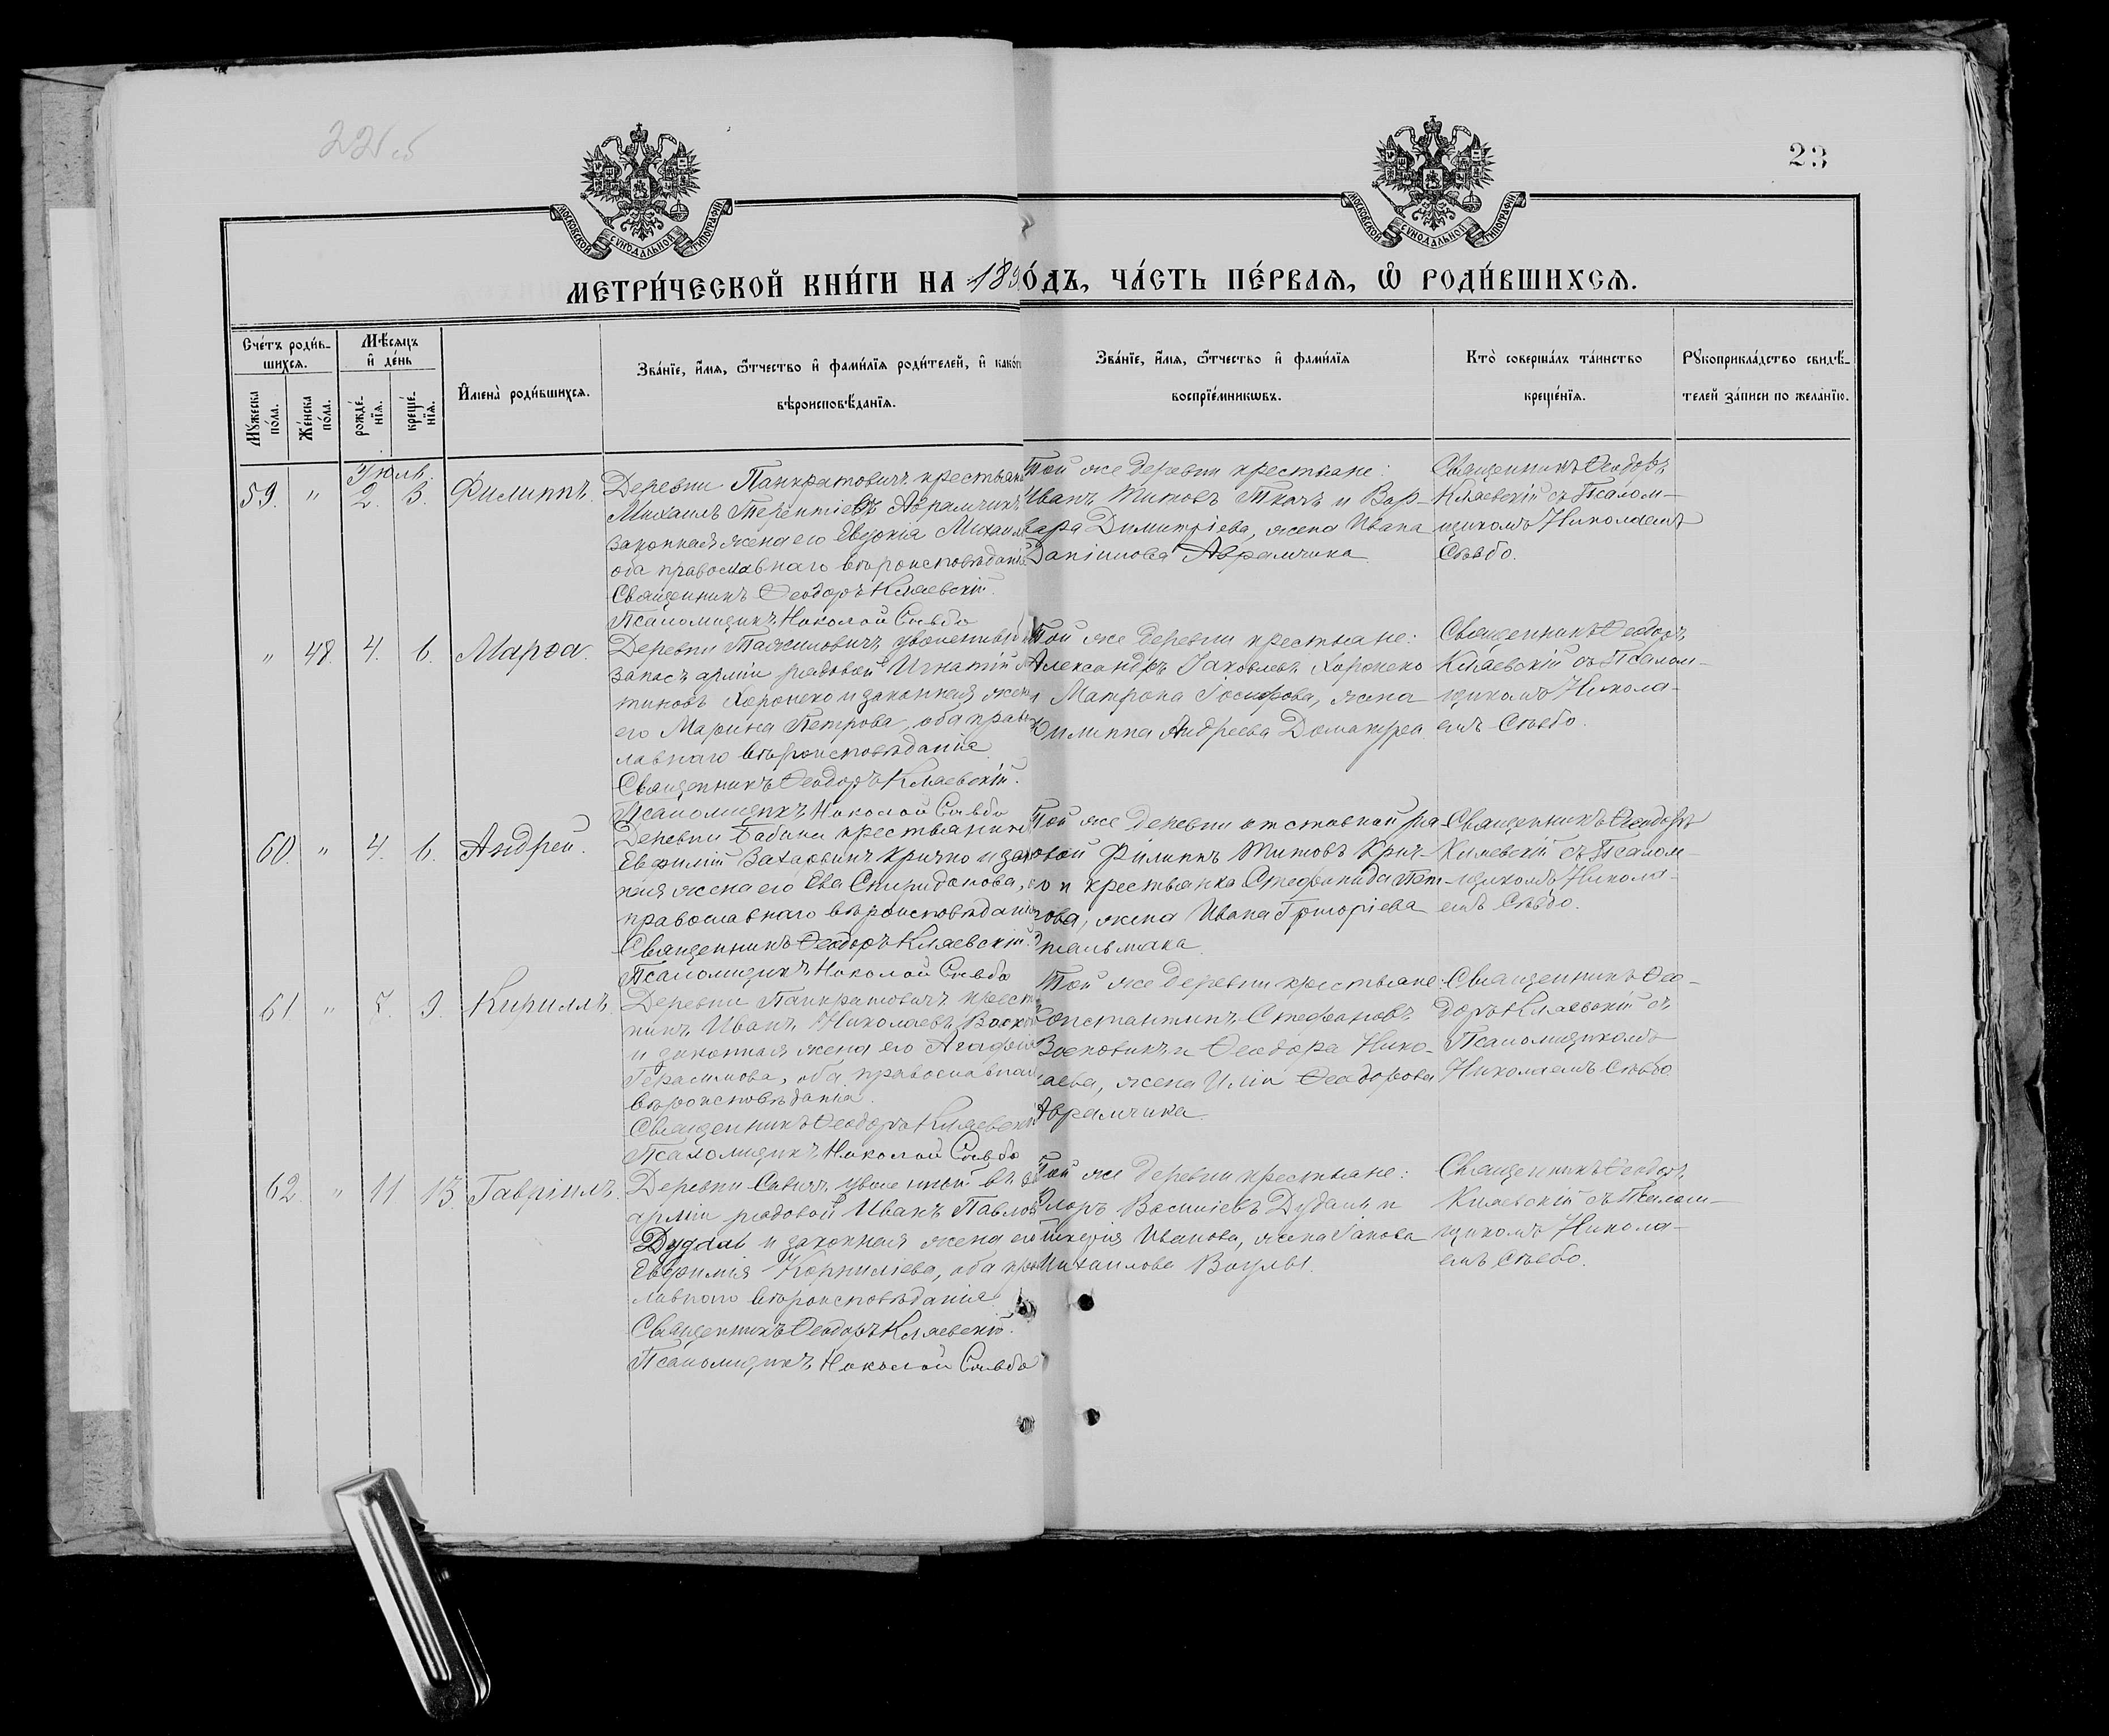 22об
23
МОСКОВСКОЙ СУНОДАЛЬНОЙ ТИПОГРАФІИ
МОСКОВСКОЙ СУНОДАЛЬНОЙ ТИПОГРАФІИ
МЕТРИ́ЧЕСКОЙ КНИ́ГИ НА 189 О́ДЪ, ЧА́СТЬ ПЕ́РВАѦ, Ѽ РОДИ́ВШИХСѦ.
Сче́тъ роди́в-
шихсѧ.
Мꙋ́жеска по́ла.
Же́нска по́ла.
Мѣ́сѧцъ
и҆ де́нь
рожде́-
нїѧ.
креще́-
нїѧ.
И҆мена̀ роди́вшихсѧ.
Зва́нїе, и҆́мѧ, ѻ҆́тчество и҆ фами́лїѧ роди́телей, и҆ како́г
вѣроисповѣ́данїѧ.
Зва́нїе, и҆́мѧ, ѻ҆́тчество и҆ фами́лїѧ
воспрїе́мникѡвъ.
Кто̀ соверша́лъ та́инство
креще́нїѧ.
Рꙋкоприкла́дство свидѣ́-
телей за́писи по жела́нїю.
Іюль
59. " 2. 3. Филиппъ.
Деревни Панкратовичъ крестьян
Михаилъ Терентіевъ Аврамчикъ
законная жена его Евдокія Михаил
оба православнаго вѣроисповѣданія
Священникъ Ѳеодоръ Кляевскій.
Псаломщикъ Николай Сѣвбо
Той же деревни крестьяне:
Иванъ Титовъ Ткачъ и Вар-
вара Димитріева, жена Ивана
Даніилова Аврамчика
Священникъ Ѳеодоръ
Кляевскій съ Псалом-
щикомъ Николаемъ
Сѣвбо.
" 48. 4. 6. Марѳа.
Деревни уволенный
запасъ арміи рядовой Игнатій
тиновъ Хоронеко и законная жена
его Марина Петрова, оба право
лавнаго вѣроисповѣданія
Священникъ Ѳеодоръ Кляевскій.
Псаломщикъ Николай Сѣвбо
Той же деревни крестьяне:
Александръ Іаковлевъ Хоронеко
и Матрона Іосифова, жена
Филиппа Андреева
Священникъ Ѳеодоръ
Кляевскій съ Псалом-
щикомъ Никола-
емъ Сѣвбо.
60. " 4. 6. Андрей.
Деревни Бабичи крестьянинъ
Евфимій Захарьинъ Кричко и зак
ная жена его Ева Спиридонова,
православнаго вѣроисповѣданія
Священникъ Ѳеодоръ Кляевскій.
Псаломщикъ Николай Сѣвбо
Той же деревни отставной ря-
овой Филиппъ Титовъ Крич-
ко и крестьянка Стефанида Пет-
рова, жена Ивана Григоріева
Священникъ Ѳеодоръ
Кляевскій съ Псалом-
щикомъ Никола-
емъ Сѣвбо.
61 " 7. 9. Кириллъ.
Деревни Панкратовичъ крест
нинъ Иванъ Николаевъ
и законная жена его Агафія
Герасимова, оба православнаго
вѣроисповѣданія.
Священникъ Ѳеодоръ Кляевскій
Псаломщикъ Николай Сѣвбо
Той же деревни крестьяне:
Константинъ Стефановъ
и Ѳеодора Нико-
лаева, жена Иліи Ѳеодорова
Аврамчика.
Священникъ Ѳео-
доръ Кляевскій съ
Псаломщикомъ
Николаемъ Сѣвбо
62 " 11 13. Гавріилъ.
Деревни Савичъ уволенный въ
арміи рядовой Иванъ Павловъ
Дудаль и законная жена его
Евфимія Корнильева, оба прав
лавнаго вѣроисповѣданія
Священникъ Ѳеодоръ Кляевскій.
Псаломщикъ Николай Сѣвбо
Той же деревни крестьяне:
Василіевъ Дудаль и
Гликерія Иванова, жена Іакова
Михаилова
Священникъ Ѳеодоръ
Кляевскій съ Псалом-
щикомъ Никола-
емъ Сѣвбо.